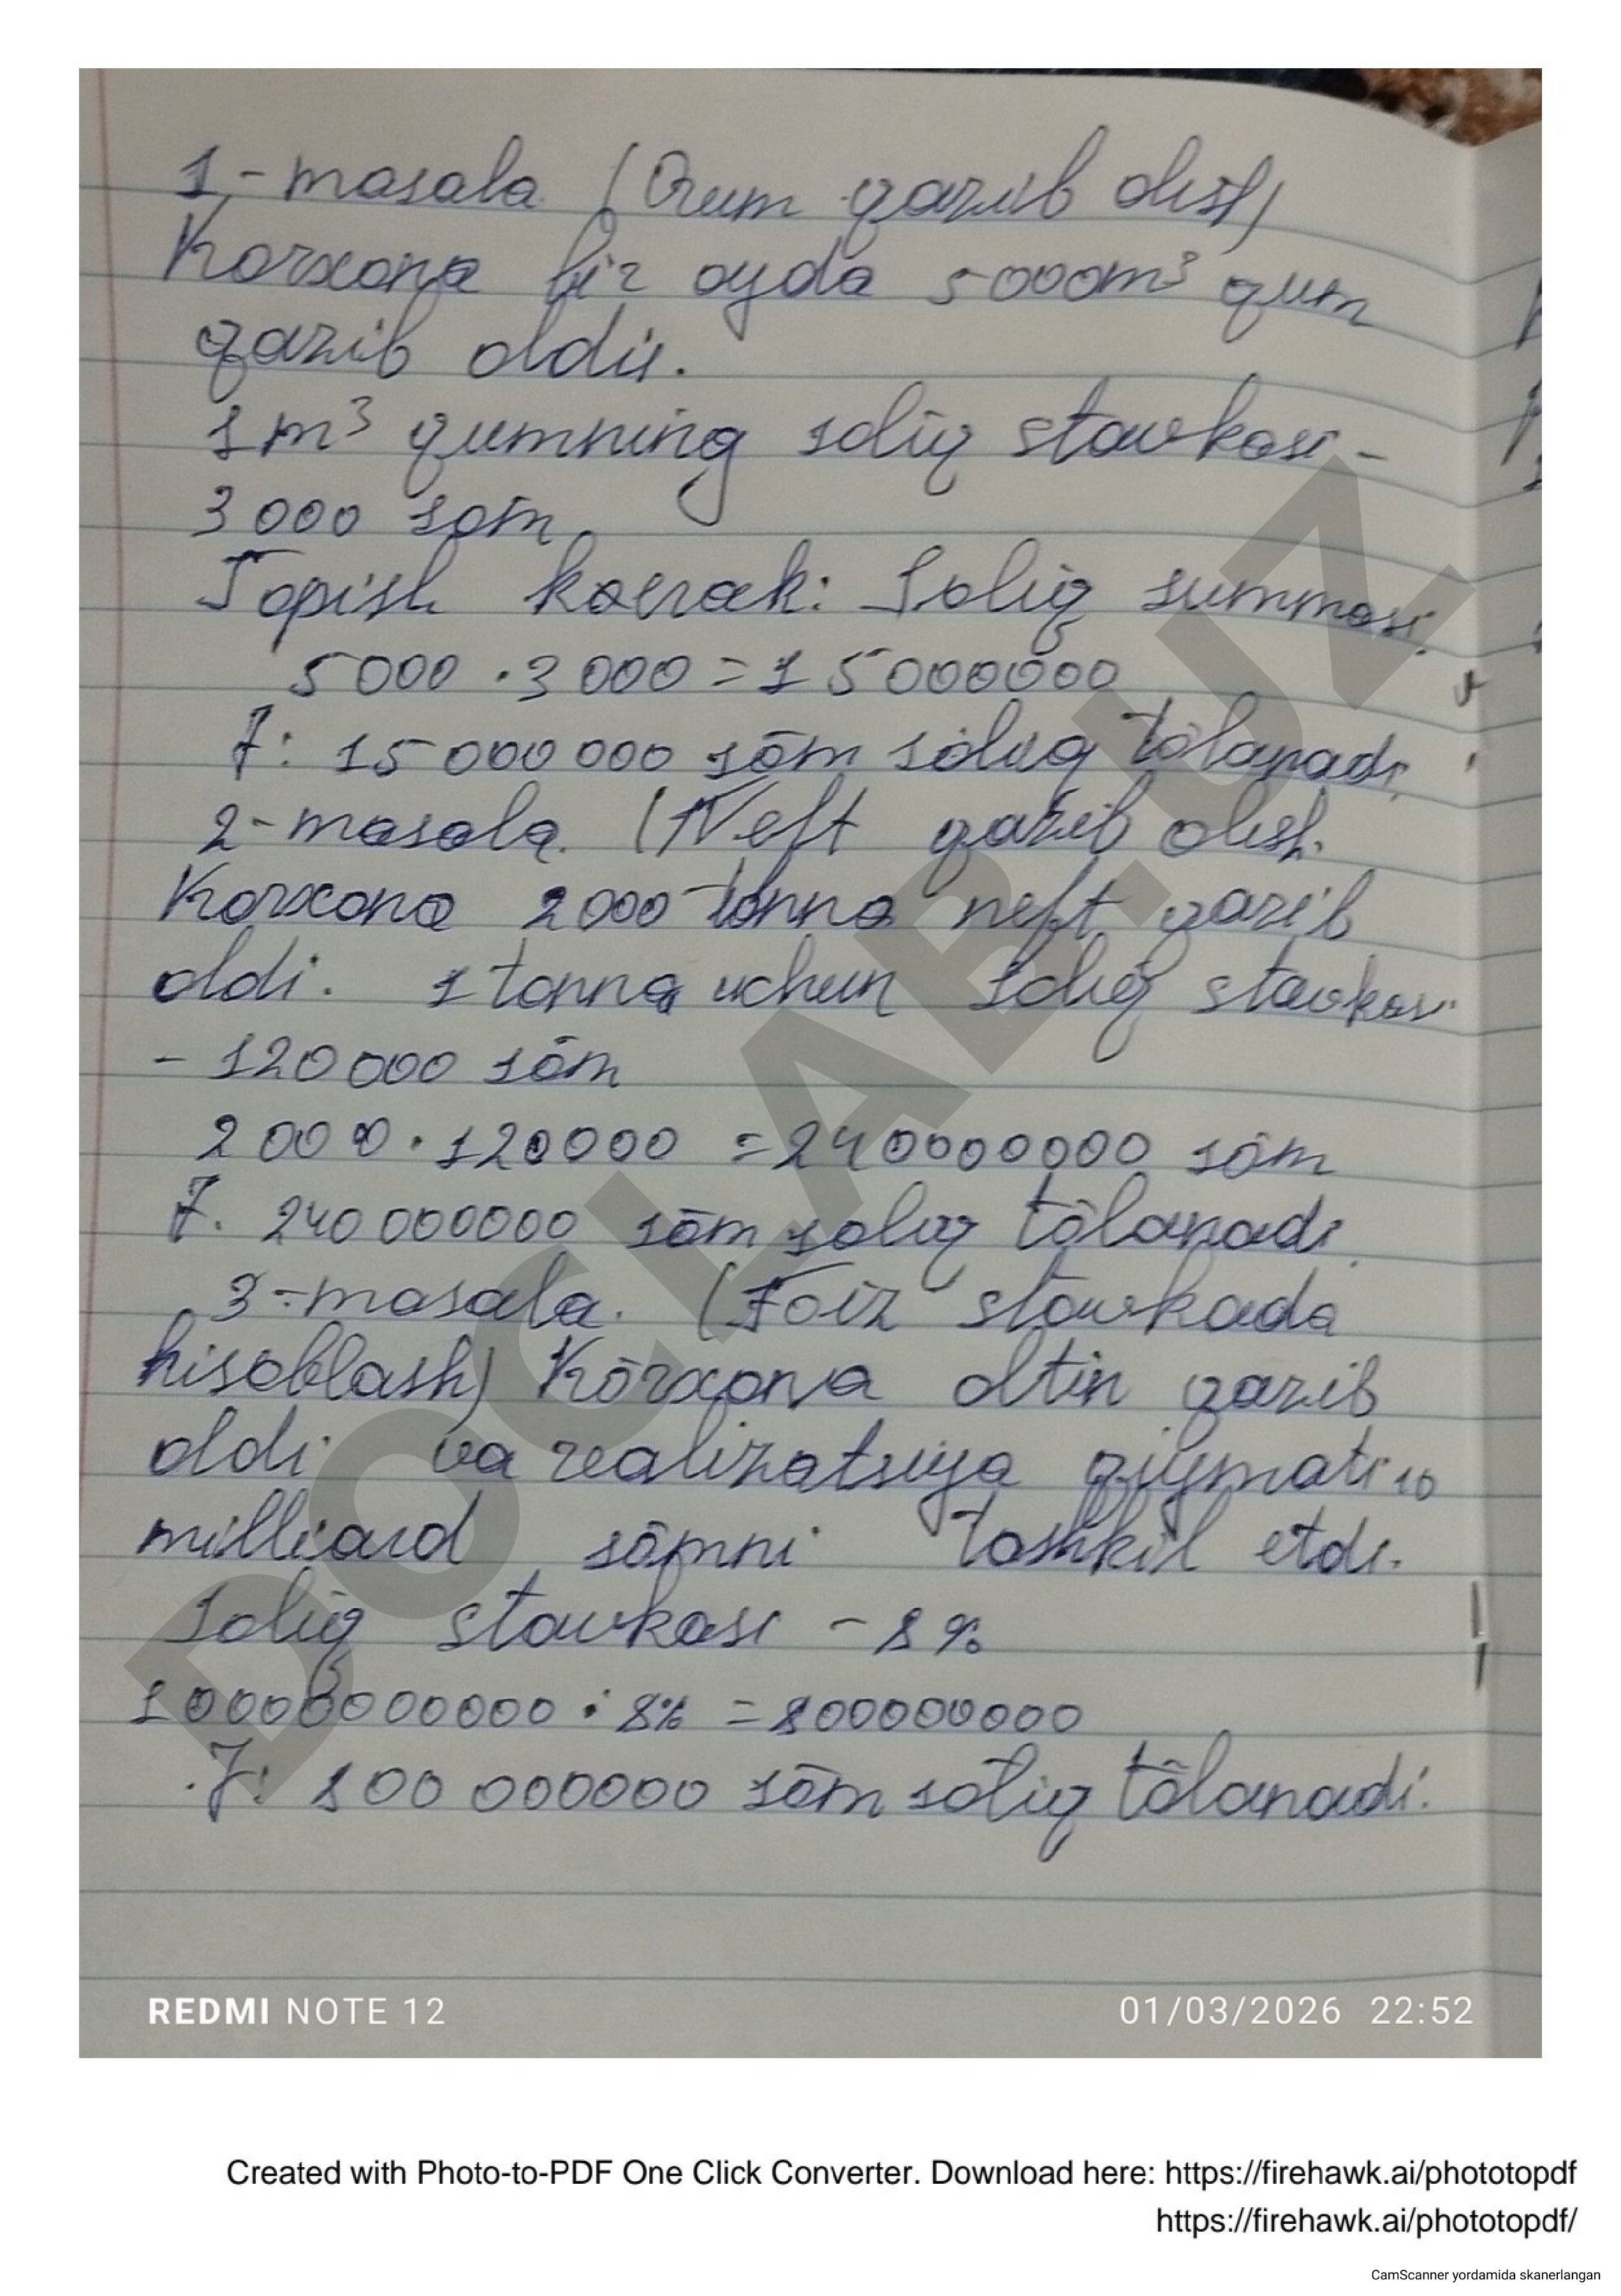 1-masala (Qum qazib olish)
Korxona bir oyda 5000m³ qum
qazib oldi.
1m³ qumning soliq stavkasi -
3000 som
Topish kaerak: Soliq summasi.
5000 · 3000 = 15000000
J: 15000000 sōm soliq tōlanadi.
2-masala. (Neft qazib olish.
Korxona 2000 tonna neft qazib
oldi. 1 tonna uchun soliq stavkasi
- 120000 sōm
2000 · 120000 = 240000000 sōm
J. 240000000 sōm soliq tōlanadi.
3-masala. (Foiz stavkada
hisoblash) Kōrxona oltin qazib
oldi va realizatsiya qiymati 10
milliard sōmni tashkil etdi.
Soliq stavkasi - 8%
10000000000 · 8% = 800000000
J: 800 000000 sōm soliq tōlanadi.
DOCLAB.UZ
REDMI NOTE 12 01/03/2026 22:52
Created with Photo-to-PDF One Click Converter. Download here: https://firehawk.ai/phototopdf
https://firehawk.ai/phototopdf/
CamScanner yordamida skanerlangan